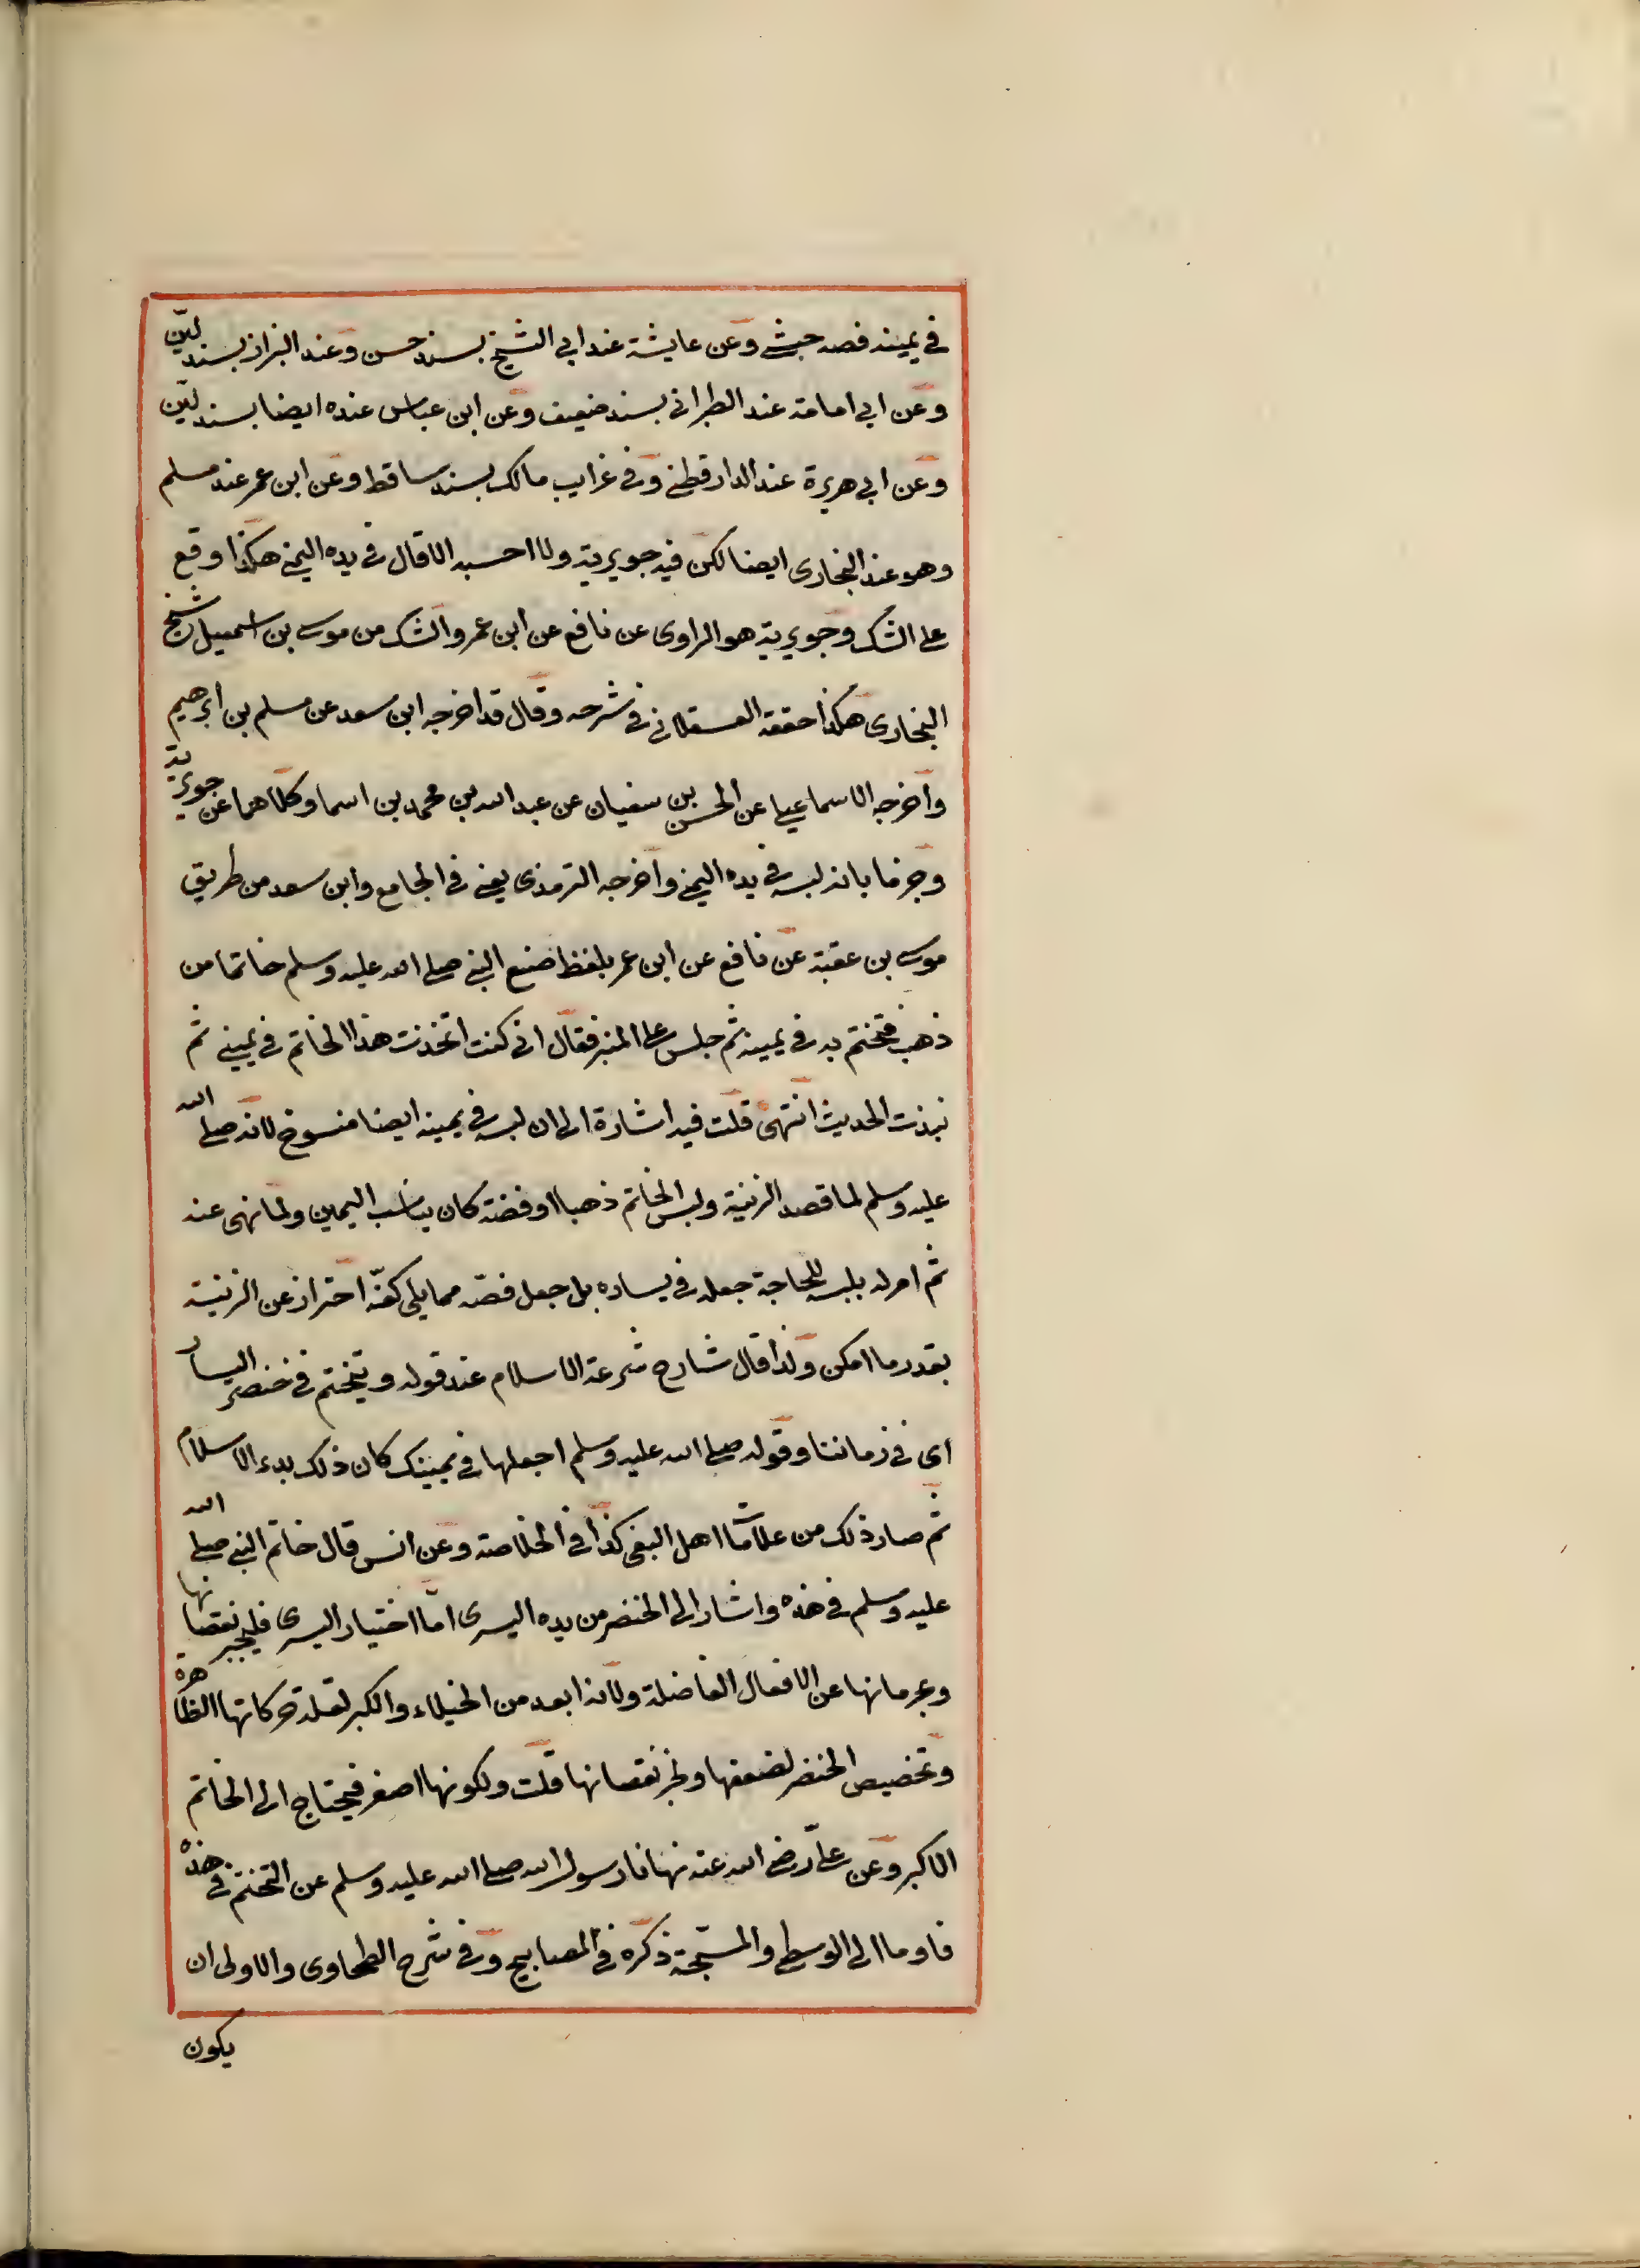 في يمينه فصه حبشي وعن عايشة عند ابي الشيخ بسند حسن وعند البزاز بسند ليّن
وعن ابي امامة عند الطبراني بسند ضعيف وعن ابن عباس عنده ايضا بسند ليّن
وعن ابي هريرة عند الدارقطني وفي غرايب مالك بسند ساقط وعن ابن عمر عند مسلم
وهو عند البخارى ايضا لكن فيه جويرية ولا احسبه الا قال في يده اليمنى هكذا وقع
على الشك وجويرية هو الراوى عن نافع عن ابن عمر والشك من موسى بن اسمعيل شيخ
البخارى هكذا حققه العسقلاني في شرحه وقال قد اخرجه ابن سعد عن مسلم بن ابرهيم
واخرجه الاسماعيلي عن الحسن بن سفيان عن عبد الله بن محمد بن اسما وكلاهما عن جويرية
وجزما بانه لبسه في يده اليمنى واخرجه الترمذى يعني في الجامع وابن سعد من طريق
موسى بن عقبة عن نافع عن ابن عمر بلفظ صنع النبي صلى الله عليه وسلم خاتما من
ذهب فتختم به في يمينه ثم جلس على المنبر فقال اني كنت اتخذت هذا الخاتم في يميني ثم
نبذت الحديث انتهى قلت فيه اشارة الى ان لبسه في يمينه ايضا منسوخ لانه صلى الله
عليه وسلم لما قصد الزينة ولبس الخاتم ذهبا او فضة كان يناسب اليمين ولما نهى عنه
ثم امر له بلبسه للحاجة جعله في يساره بل جعل فصّه مما يلى كفّه احتراز عن الزينة
بقدر ما امكن ولذا قال شارح شرعة الاسلام عند قوله ويتختم في خنصر اليسار
اى في زماننا وقوله صلى الله عليه وسلم اجعلها في يمينك كان ذلك بدء الاسلام
ثم صار ذلك من علامات اهل البغى كذا في الخلاصة وعن انس قال خاتم النبي صلى الله
عليه وسلم في هذه واشار الى الخنصر من يده اليسرى امّا اختيار اليسرى فليجبر نقصانها
وحرمانها عن الافعال الفاضلة ولانه ابعد من الخيلاء والكبر لقلة حركاتها الظاهرة
وتخصيص الخنصر لضعفها ولجبر نقصانها قلت ولكونها اصغر فيحتاج الى الخاتم
الاكبر وعن علي رضي الله عنه نهانا رسول الله صلى الله عليه وسلم عن التختم في هذه
فاوما الى الوسطى والمسبّحة ذكره في المصابيح وفي شرح الطحاوى والاولى ان
يكون